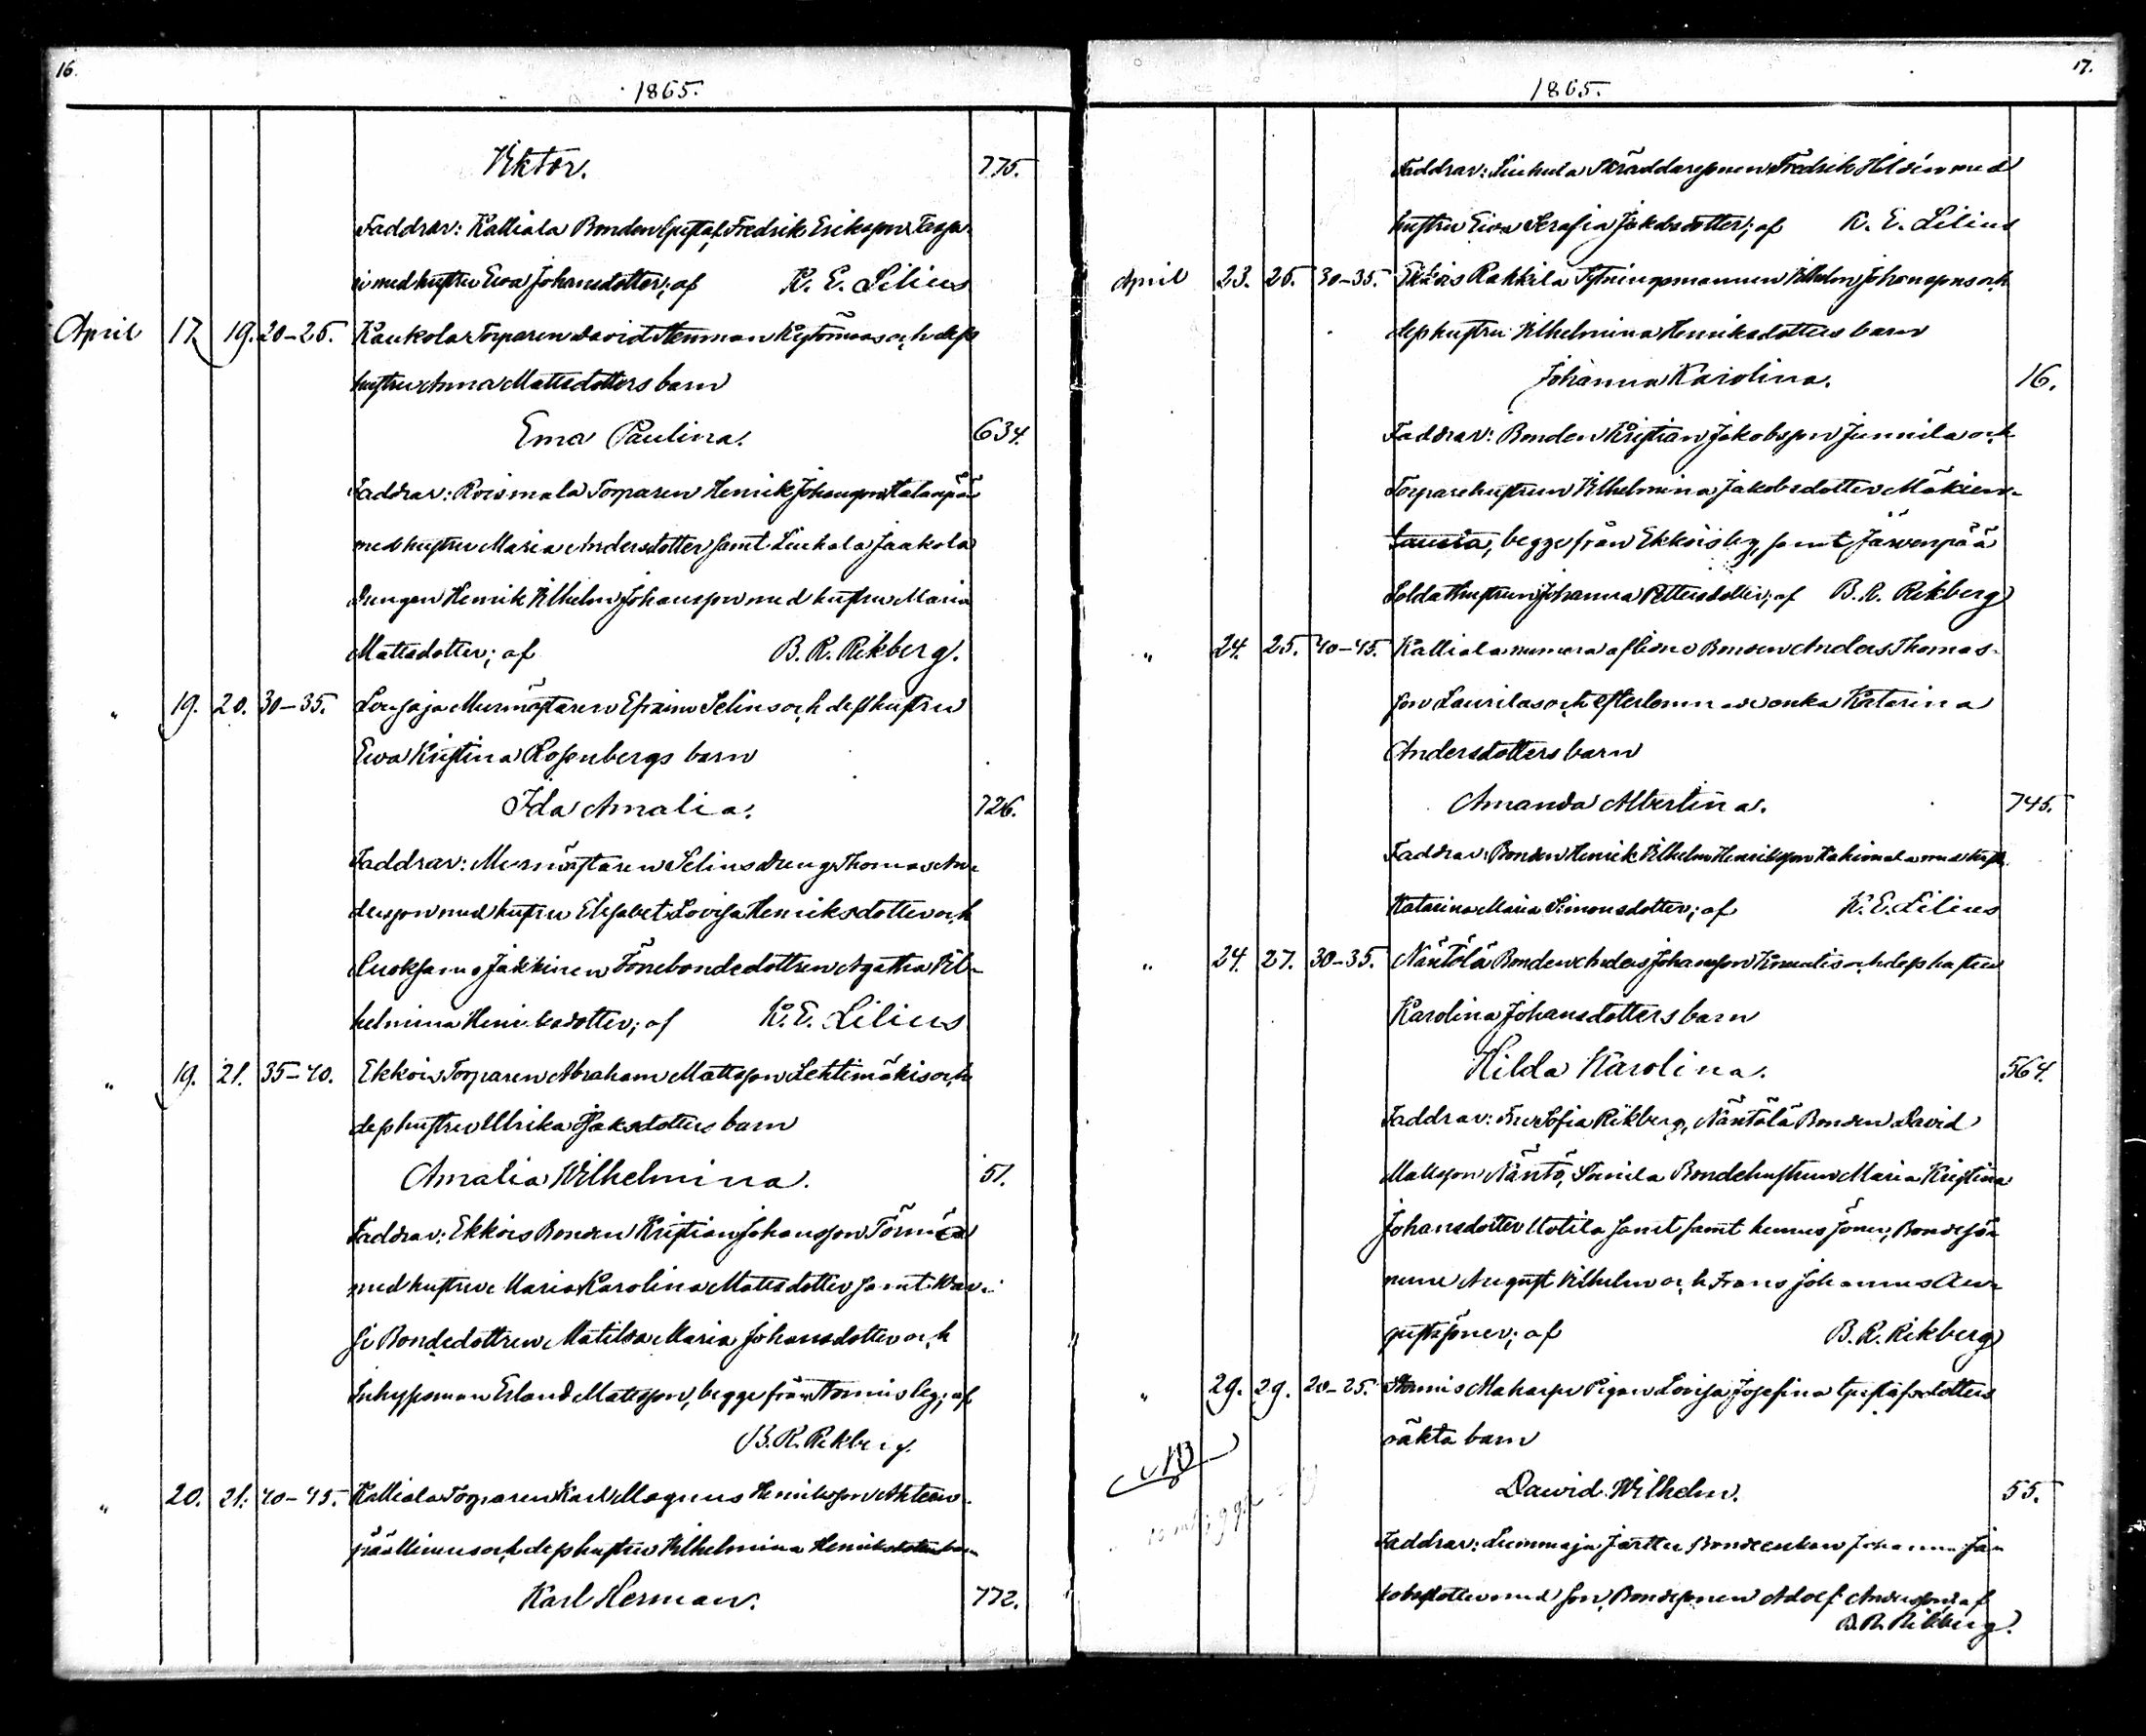 16.
1865.
Viktor. 775.
Faddrar: Kalliala Bonden Gustaf Fredrik Eriksson Taspa-
i med hustru Ewa Johansdotter; af K. E. Lilius
April 17. 19. 20-25. Kaukola Torparen David Henman och dess
hustru Anna Mattsdotters barn
Ema Paulina. 634.
Faddrar: Roismala Torparen Henrik Johansson
med hustru Maria Andersdotter samt Liukala Jaakola
Drengen Henrik Vilhelm Johansson med hustru Maria
Mattsdotter; af B. R. Rikberg.
" 19. 20. 30-35. Murmästaren Efraim Selins och dess hustru
Ewa Kristina Rosenbergs barn
Ida Amalia. 726.
Faddrar: Murmästaren Selins dreng Thomas An-
dersson med hustru Elisabet Lovisa Henriksdotter och
Jaskinen Agatha Vil-
helmina Henriksdotter; af K. E. Lilius
" 19. 21. 35-40. Ekkois Torparen Abraham Mattsson Lehtimäkis och
dess hustru Ulrika Isaksdotters barn
Amalia Wilhelmina. 51.
Faddrar: Ekkois Bonden Kristian Johansson Törmä
med hustru Maria Karolina Mattsdotter samt
Bondedottren Matilda Maria Johansdotter och
Inhyses man Erland Mattsson, begge från by; af
B. R. Rikberg.
" 20. 21. 40-45. Kalliala Torparen Karl Magnus Henriksson
och dess hustru Vilhelmina Henriksdotters barn
Karl Herman. 772.
17.
1865.
Faddrar: Liuhula Skräddaresonen Fredrik Hildén med
hustru Ewa Serafia Jakobsdotter; af K. E. Lilius
April 23. 25. 30-35. Ekkois Rakkila Sytningsmannen Vilhelm Johanssons och
dess hustru Vilhelmina Henriksdotters barn
Johanna Karolina. 16.
Faddrar: Bonden Kristian Jakobsson Junnila och
Torparehustrun Vilhelmina Jakobsdotter Mäkien-
begge från Ekkois by, samt Järvenpää
Soldathustrun Johanna Pettersdotter; af B. R. Rikberg
" 24. 25. 40-45. Kalliala numera aflidne Bonden Anders Thomas-
son Laurilas och efterlemnade enka Katarina
Andersdotters barn
Amanda Albertina. 745.
Faddrar: Bonden Henrik Vilhelm Henriksson med hustr.
Katarina Maria Simonsdotter; af K. E. Lilius
" 24. 27. 30-35. Näntölä Bonden Anders Johansson och dess hustru
Karolina Johansdotters barn
Hilda Karolina. 564.
Faddrar: Fru Sofia Rikberg, Näntölä Bonden David
Mattsson Näntö, Bondehustrun Maria Kristina
Johansdotter Uotila samt samt hennes söner, Bondesö-
nerne August Vilhelm och Frans Johannes Au-
gustssöner; af B. R. Rikberg
" 29. 29. 20-25. Maharju Pigan Lovisa Josefina Gustafsdotters
oäkta barn
NB
David Wilhelm. 55.
Faddrar: Bondeenkan Johanna Ja-
kobsdotter med son, Bondesonen Adolf Andersson; af
B. R. Rikberg.